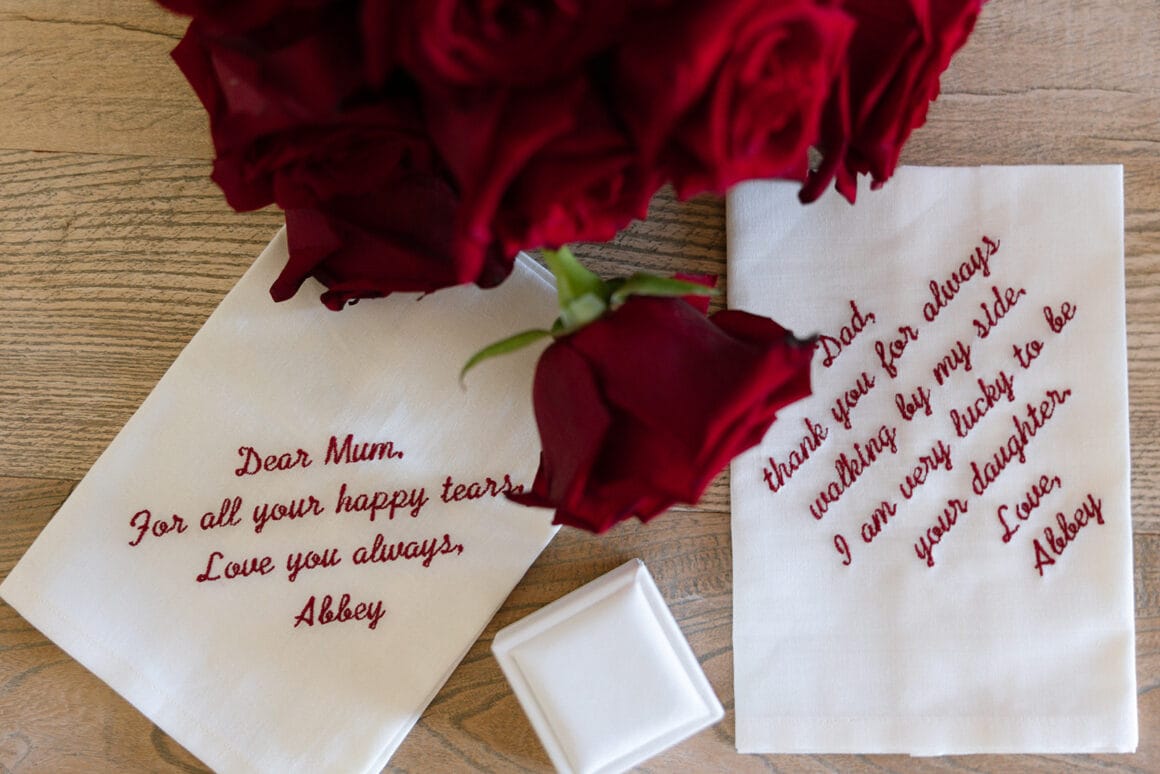 Dear Mum.
For all your happy tears.
Love you always,
Abbey
Dad,
thank you for always
walking by my side.
I am very lucky to be
your daughter.
Love,
Abbey